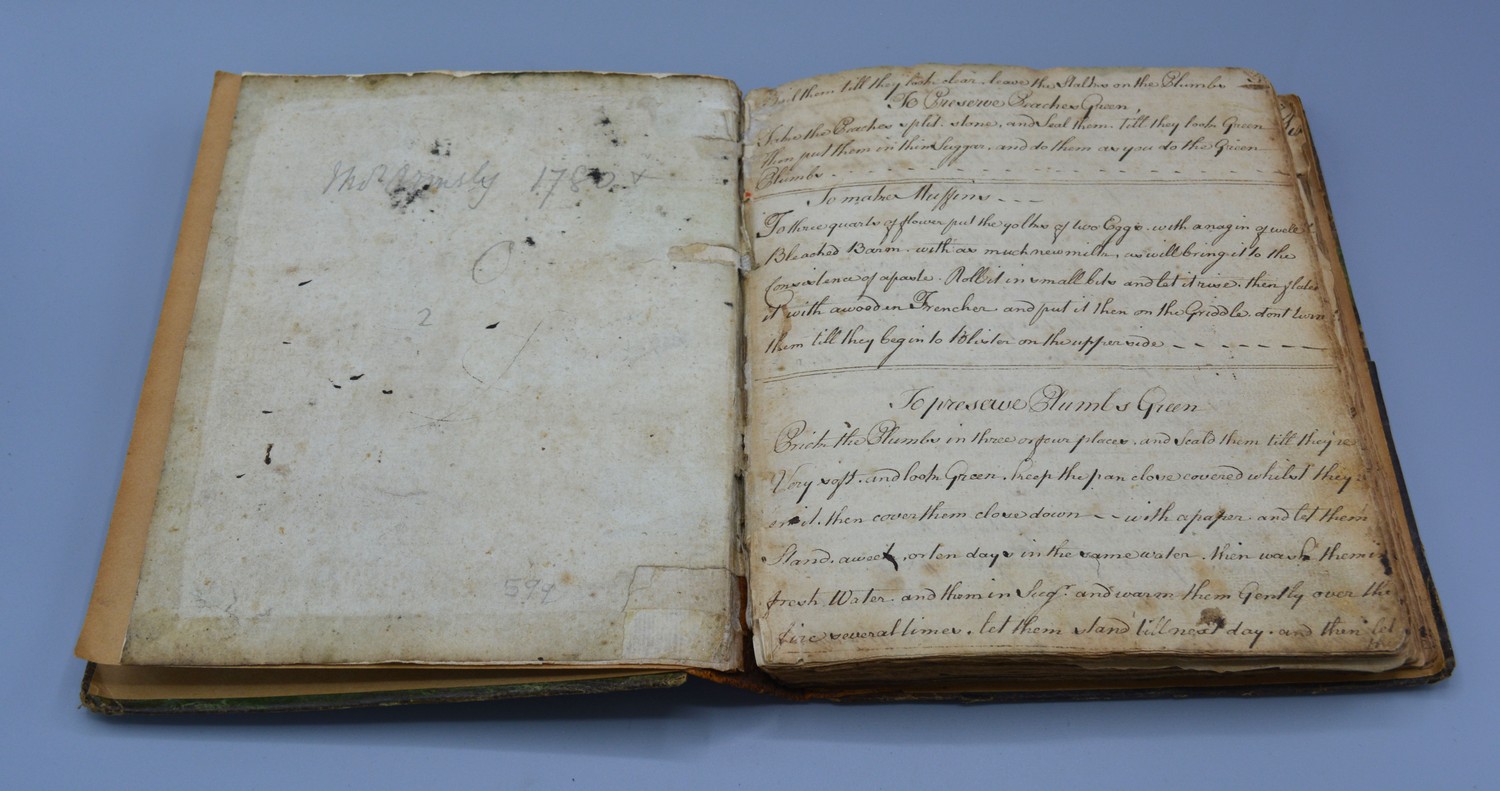 Thos Ormsby 1780 +
2
594
Boil them till they look clear. leave the Stalks on the Plumbs
To Preserve Peaches Green,
Take the Peaches split. stone, and Scal them. till they look Green
then put them in thin Suggar. and do them as you do the Green
Plumbs
To make Muffins - - -
To three quarts of flower put the yolks of two Eggs. with a nagin of well
Bleached Barm. with as much new milk, as will bring it to the
Consistence of a paste. Roll it in small bits and let it rise. then flaten
it with a wooden Trencher and put it then on the Griddle. dont turn
them till they begin to Blister on the upper side - - - - - - -
To preserve Plumbs Green
Prick the Plumbs in three or four places. and Scald them till they're
Very soft. and look Green. keep the pan close covered whilst they're
in it. then cover them close down - - with a paper and let them
Stand. a week, or ten days in the same water. then wash them in
fresh Water. and them in Sugr. and warm them Gently over the
fire several times. let them stand till next day. and then let